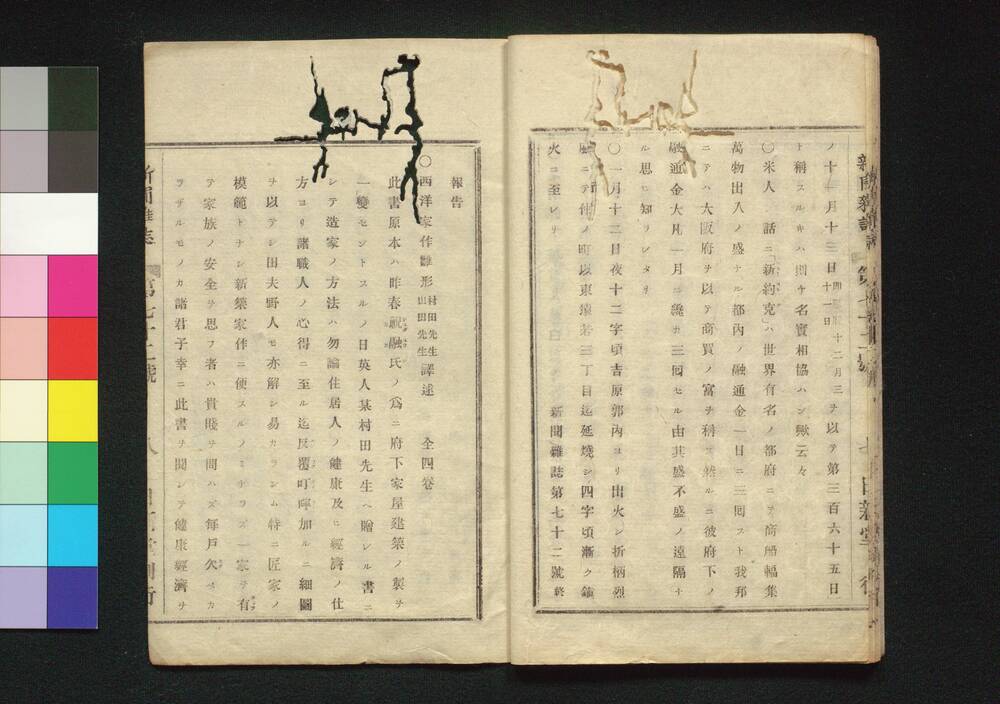 ノ十一月十三日即十二月三十一日ヲ以テ第三百六十五日
ト稱スルキハ則チ名實相協ハン歟云々
〇米人ノ話ニ「新約克」ハ世界有名ノ都府ニテ商舶輻集
萬物出入ノ盛ナル都內ノ融通金一日ニ三囘スト我邦
ニテハ大阪府ヲ以テ商買ノ富ヲ稱ス然ルニ彼府下ノ
融通金大凡一月ニ纔カ三囘セル由其盛不盛ノ遠隔ナ
ル思ヒ知ラレタリ
〇一月十二日夜十二字頃吉原郭內ヨリ出火シ折柄烈
風ニテ仲ノ町以東猿若三丁目迄延燒シ四字頃漸ク鎭
火ニ至レリ
新聞雜誌第七十二號終
報告
〇西洋家作雛形 村田先生 山田先生 譯述 全四卷
此書原本ハ昨春祝融氏ノ爲ニ府下家屋建築ノ製ヲ
一變セントスルノ日英人某村田先生ヘ贈レル書ニ
シテ造家ノ方法ハ勿論住居人ノ健康及ヒ經濟ノ仕
方ヨリ諸職人ノ心得ニ至ル迄反覆叮嚀加ルニ細圖
ヲ以テシ田夫野人モ亦解シ易カラシム特ニ匠家ノ
模範トナシ新築家作ニ便スルノミナラズ一家ヲ有
テ家族ノ安全ヲ思フ者ハ貴賤ヲ問ハズ每戶欠ベカ
ラザルモノカ諸君子幸ニ此書ヲ閱シテ健康經濟ヲ
新聞雜誌 第七十二號 八 日新堂刊行